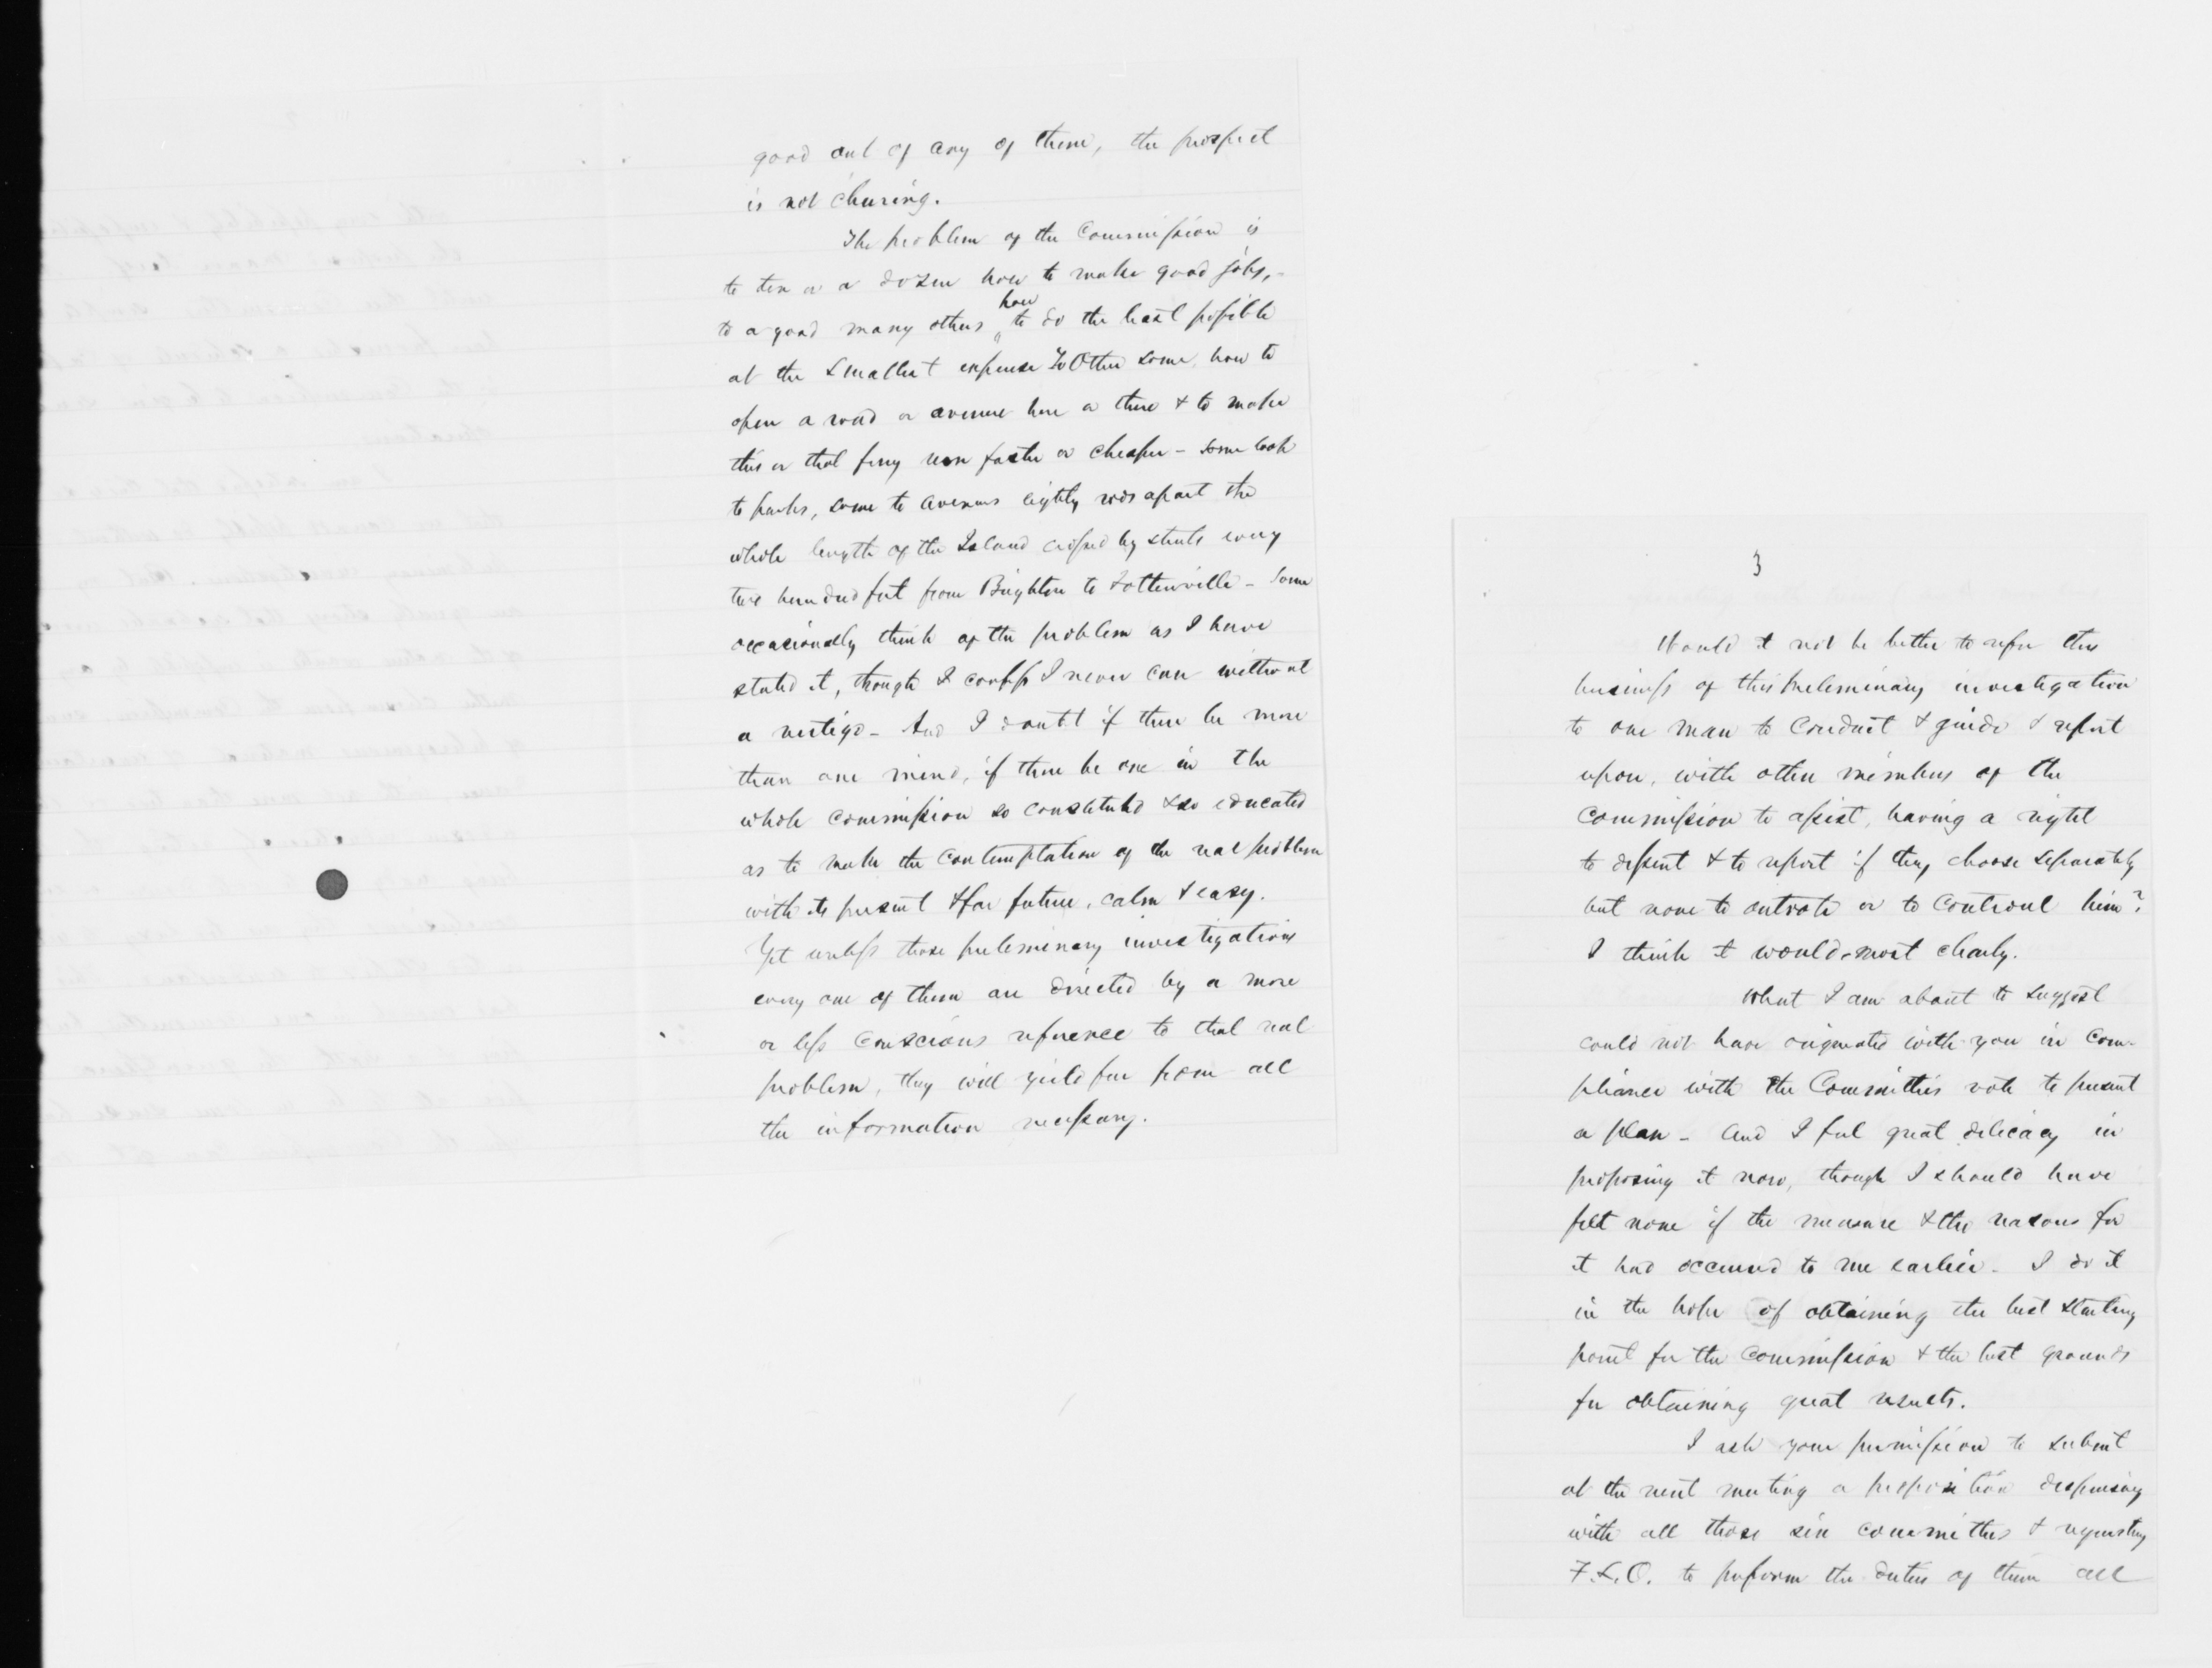 good out of any of them, the prospect
is not cheering.
The problem of the Commission is
to ten or a dozen how to make good jobs,-
to a good many others how to do the least possible
at the smallest expense To Other some, how to
open a road or avenue here or there & to make
this or that ferry run faster or cheaper - some look
to parks, some to avenues eighty rods apart the
whole length of the Island crossed by streets every
two hundred feet from Brighton to Tottenville - Some
occasionally think of the problem as I have
stated it, though I confess I never can without
a vertigo - And I doubt if there be more
than one mind, if there be one in the
whole commission so constituted & so educated
as to make the contemplation of the real problem
with its present & far future, calm & easy.
Yet unless those preleminary investigations
every one of them are directed by a more
or less conscious reference to that real
problem, they will yield far from all
the information necessary.
3
Would it not be better to refer this
business of this preleminary investigation
to one man to conduct & guide & report
upon, with other members of the
Commission to assist, having a right
to dissent & to report if they choose separately
but none to outvote or to controul him?
I think it would most clearly.
What I am about to suggest
could not have originated with you in com-
pliance with the Committees vote to present
a plan - And I feel great delicacy in
proposing it now, though I should have
felt none if the measure & the reasons for
it had occurred to me earlier - I do it
in the hope of obtaining the best starting
point for the Commission & the best grounds
for obtaining great results.
I ask your permission to submit
at the next meeting a proposition dispensing
with all those six committees & requesting
F.L.O. to perform the duties of them all